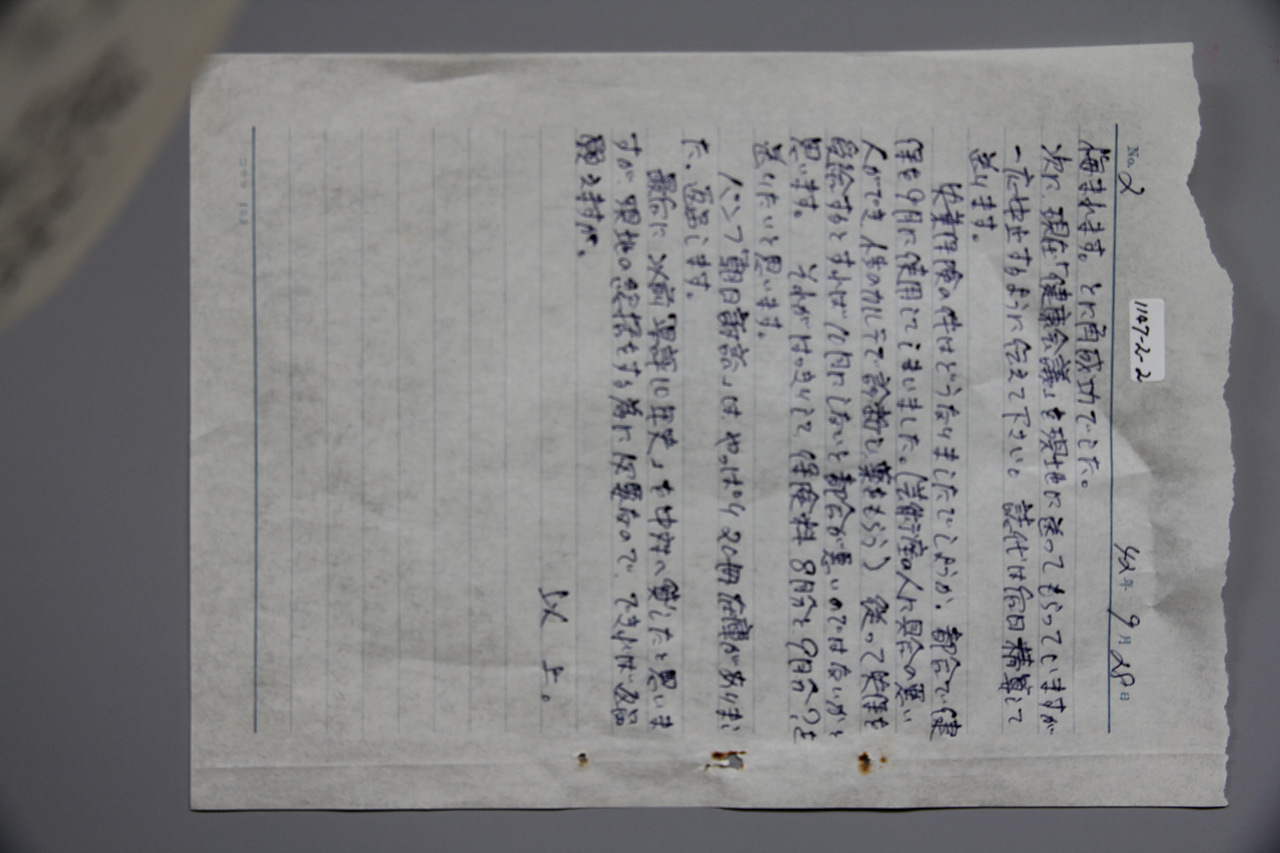 No. 2
1147-2-2
44年 9月 28日
悔まれます。とに角成功でした。
次に、現在「健康会議」を現地に送ってもらっていますが
一応中止するように伝えて下さい。誌代は何日精算して
送ります。
失業保険の件はどうなりましたでしょうか。都合で健
保を9月に使用してしまいました。(芸術座の人に具合の悪い
人ができ僕のカルテで診断し薬をもらう) 従って失保を
受給するとすれば10月にしないと都合が悪いのではないかと
思います。それがはっきりして保険料8月分と9月分(?)を
送りたいと思います。
パンフ「朝日訴訟」はやっぱり20冊在庫がありまし
た。返品します。
最后に以前「県藥10年史」を中井へ貸したと思いま
すが、現地の総括をする為に必要なので、できれば返品
願えますが。
以上。